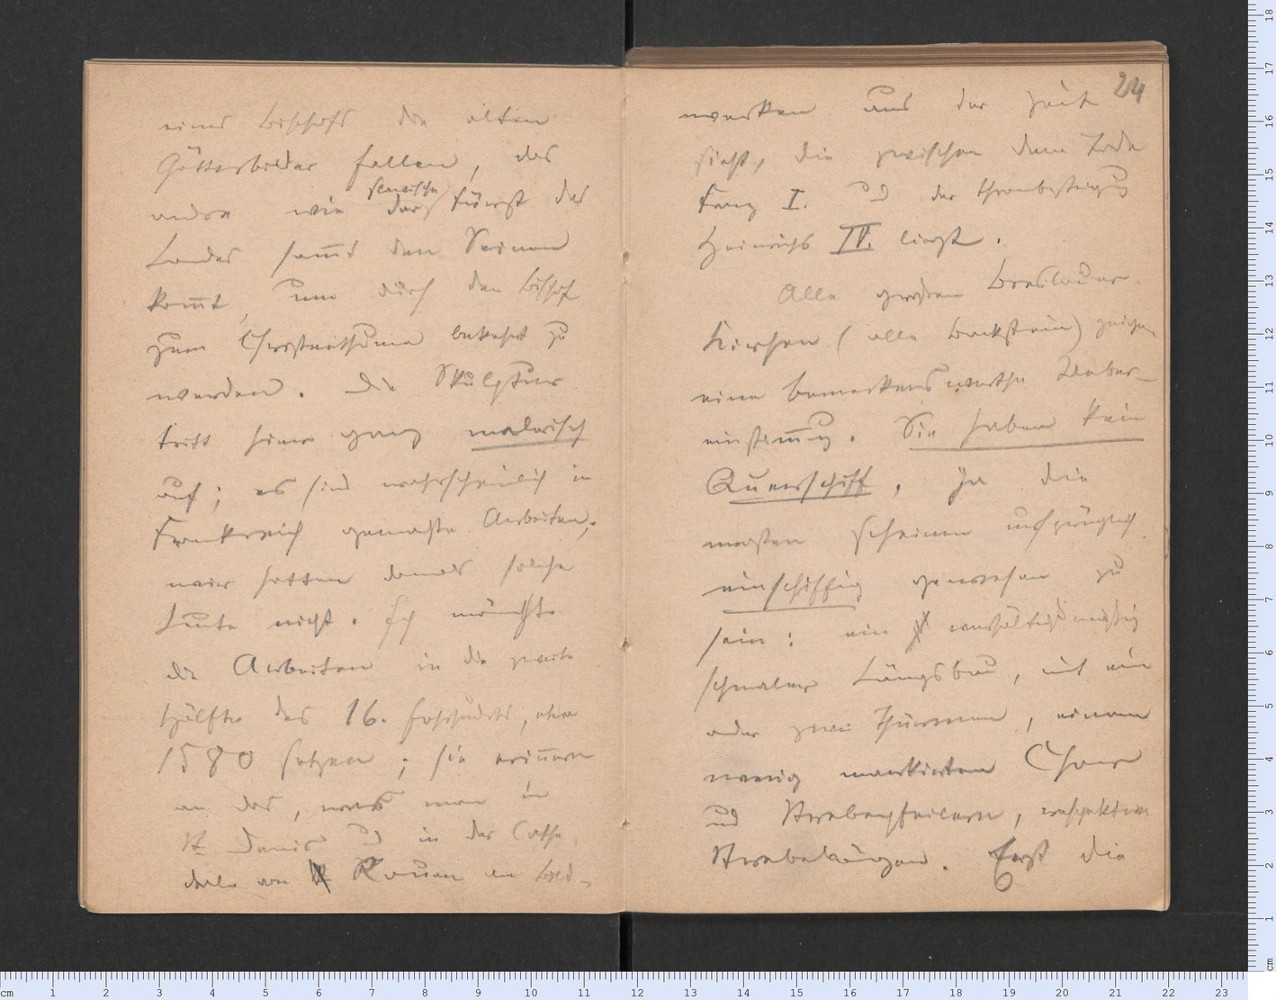 eines Bischofs die alten
Götterbilder fallen, das
andre wie der slavische Fürst des
Landes sammt den Seinen
kommt, um durch den Bischof
zum Christenthume bekehrt zu
werden. Die Skulptur
tritt hier ganz malerisch
auf; es sind wahrscheinlich in
Frankreich gemachte Arbeiten,
wir hatten damals solche
Leute nicht. Ich möchte
die Arbeiten in die zweite
Hälfte des 16. Jahrhunderts, etwa
1580 setzen; sie erinnern
an das, was man in
St Denis und in der Cathe
drale von Rouen an Bild-
24
werken aus der Zeit
sieht, die zwischen dem Tode
Franz I. und der Thronbesteigung
Heinrichs IV. liegt.
Alle großen Breslauer
Kirchen (alle Backstein) zeigen
eine bemerkenswerthe Ueber-
einstimmung. Sie haben kein
Querschiff, ja die
meisten scheinen ursprünglich
einschiffig gewesen zu
sein: ein verhältnißmäßig
schmaler Längsbau, mit ein
oder zwei Thürmen, einem
wenig markirten Chor
und Strebepfeilern, respektive
Strebebögen. Erst die